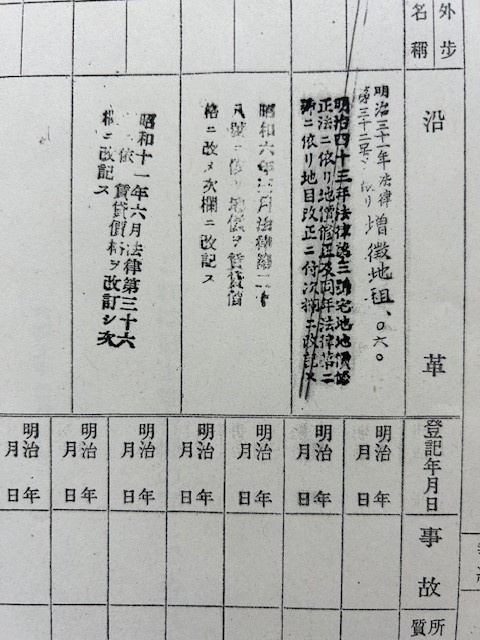 外步
名稱
沿革
明治三十一年法律
第三十二号ニ依リ
增徵地租、〇六〇
明治四十三年法律第三號宅地地價修
正法ニ依リ地價修正及同年法律第二
號ニ依リ地目改正ニ付次欄ニ改記ス
昭和六年三月法律第二十
八號ニ依リ地價ヲ賃貸價
格ニ改メ次欄ニ改記ス
昭和十一年六月法律第三十六
ニ依 賃貸價格ヲ改訂シ次
欄ニ改記ス
登記年月日
明治 年
月 日
明治 年
月 日
明治 年
月 日
明治 年
月 日
明治 年
月 日
明治 年
月 日
明治 年
月 日
事故
所
質